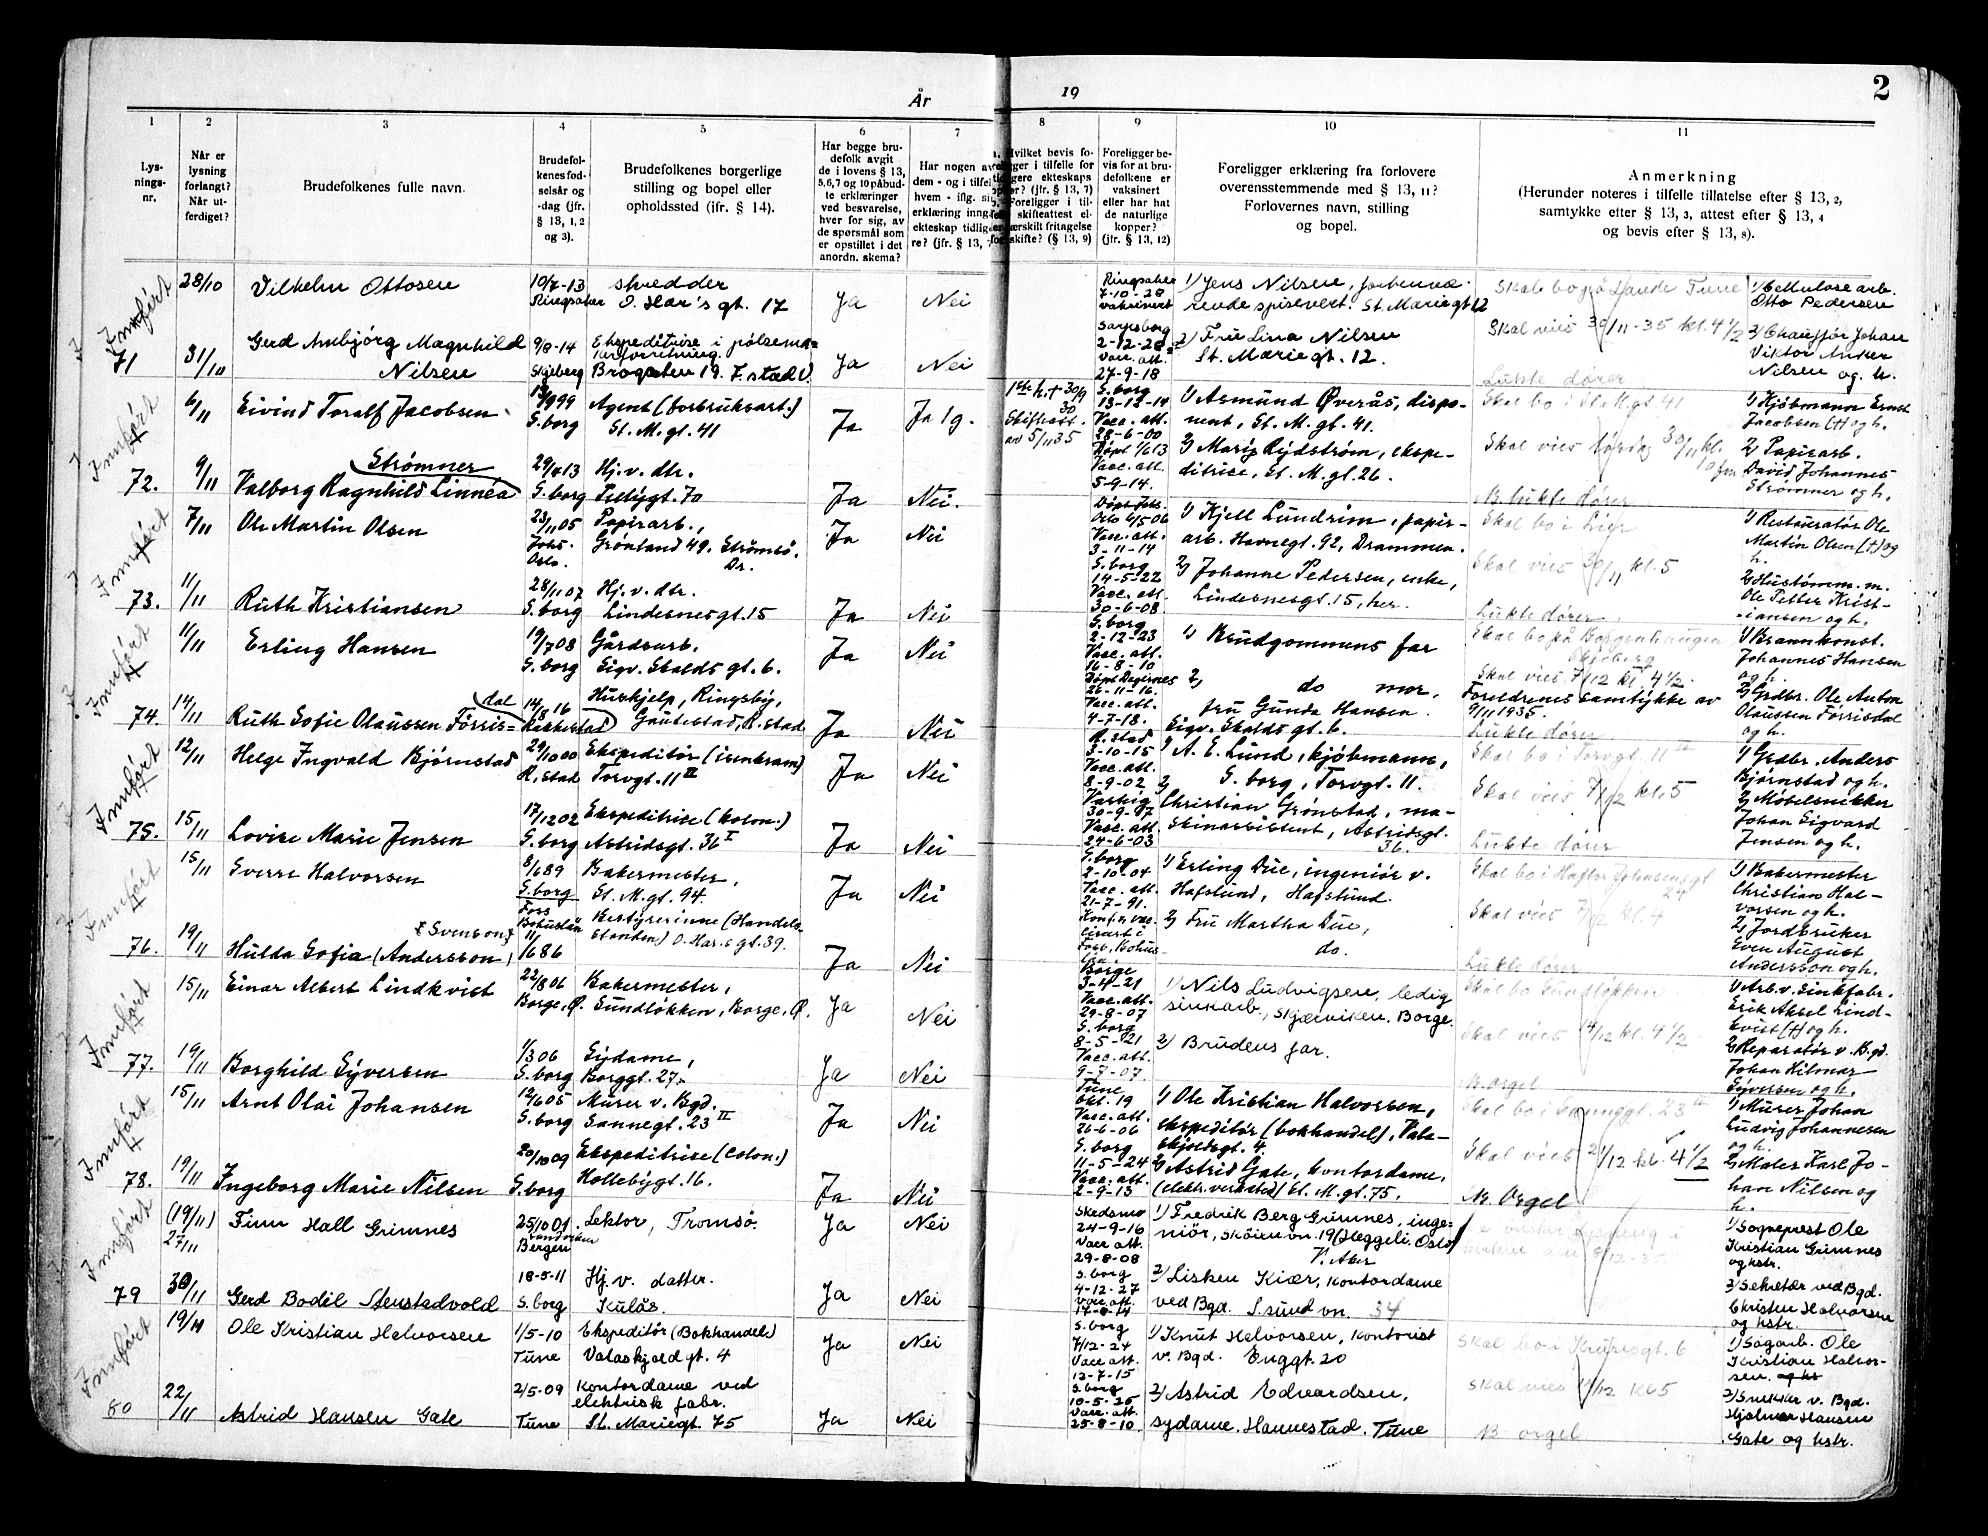 År
19
2
1
2
3
4
5
6
7
8
9
10
11
Lys-
nings-
nr.
Når er
lysning
forlangt?
Når ut-
ferdiget?
Brudefolkenes fulle navn.
Brudefol-
kenes fød-
selsår og
-dag (jfr.
§ 13, 1, 2
og 3).
Brudefolkenes borgerlige
stilling og bopel eller
opholdssted (jfr. § 14).
Har begge bru-
defolk avgit
de i lovens § 13,
5, 6, 7 og 10 påbud-
te erklæringer
ved besvarelse,
hver for sig, av
de spørsmål som
er opstillet i det
anordn. skema?
Foreligger be-
vis for at bru-
defolkene er
vaksinert
eller har hat
de naturlige
kopper?
(jfr. § 13, 12)
Foreligger erklæring fra forlovere
overensstemmende med § 13, 11?
Forlovernes navn, stilling
og bopel.
Anmerkning
(Herunder noteres i tilfelle tillatelse efter § 13, 2,
samtykke efter § 13, 3, attest efter § 13, 4
og bevis efter § 13, 8).
Innført
28/10
Vilhelm Ottosen
10/7-13
Ringsaker
skredder
O. Har's gt. 17
Ja
Nei
Ringsaker
7-10-28
vaksinert
1) Jens Nilsen, forhenvæ-
rende spisevert. St. Mariegt 12
Skal bo på Sande Tune
1) Cellulosearb.
Otto Pedersen
71
31/10
Gerd Anbjørg Magnhild
Nilsen
9/8-14
Skjeberg
Ekspeditrise i pølsema-
kerforretning.
Brogaten 19. F.stad
Ja
Nei
Sarpsborg
2-12-28
Vacc. att.
27-9-18
2) Fru Lina Nilsen
St. Marie gt. 12.
Skal vies 30/11-35 kl. 4 1/2
Lukte dører
2) Chauffør Johan
Viktor Anker
Nilsen og h.
Innført
6/11
Eivind Toralf Jacobsen
S. borg
Agent (forbruksart.)
St. M. gt. 41
Ja
Ja 1 g.
1ste h. † 30/9
30
Skifteatt.
av 5/11 35
S. borg
13-12-14
Vacc. att.
28-6-00
1) Asmund Øverås, dispo-
nent, St. M. gt. 41.
Skal bo i St. M. gt 41
1) Kjøbmann Ernst
Jacobsen (†) og h.
72.
9/11
Strømner
Valborg Ragnhild Linnéa
S. borg
Hj. v. dtr.
Ja
Nei.
Døpt 1/6 13
Vacc. att.
5-9-14.
2) Marie Rydstrøm, ekspe-
ditrice, St. M. gt. 26.
Skal vies lørdag 30/11 kl.
NB lukte dører
2) Papirarb.
David Johannes
Strømner og h.
Innført
7/11
Ole Martin Olsen
23/11 05
Johs.
Oslo.
Papirarb.,
Grønland 49. Strømsø.
Dr.
Ja
Nei
Oslo 6/5 06
Vacc. att.
3-11-14
1) Kjell Lundrim, papir-
arb. Havnegt. 92, Drammen.
Skal vies 30/11 kl. 5
1) Restauratør Ole
Martin Olsen (†) og
h.
73.
11/11
Ruth Kristiansen
28/11 07
S. borg
Hj. v. dtr.
Lindesnesgt. 15
Ja
Nei
S. borg
14-5-22
Vacc. att.
30-6-08
2) Johanne Pedersen, enke,
Lindesnesgt. 15, her.
Lukte dører.
2) Hustømm. m.
Ole Petter Krist-
iansen og h.
Innført
11/11
Erling Hansen
19/7 08
S. borg
Gårdsarb.
Sigv. Skalds gt. 6.
Ja
Nei
S. borg
2-12-23
Vacc. att.
16-8-10
1) Brudgommens far
Skal bo på Borgenhaugen
Skjeberg
Skal vies 7/12 kl. 4 1/2.
1) Brannkonst.
Johannes Hansen
og h.
74.
14/11
Ruth Sofie Olaussen Førris=
dal
14/8 16
Rakkestad
Huskjelp, Ringsby,
Gautestad, R. stad
Ja
Nei
26-11-16.
Vacc. att.
4-7-18.
2) do mor,
fru Gunda Hansen
Sigv. Skalds gt. 6.
Foreldrenes samtykke av
9/11 1935.
Lukte dører
2) Grdbr. Ole Anton
Olaussen Førrisdal
og h.
Innført
12/11
Helge Ingvald Bjørnstad
29/10 00
R. stad
Ekspeditør (isenkram)
Torvgt. 11 II
Ja
Nei
R. stad
3-10-15
Vacc. att.
8-9-02
1) A. E. Lund, kjøbmann,
S. borg, Torvgt. 11.
Skal bo i Torvgt. 11 II
Skal vies 7/12 kl. 5
1) Grdbr. Anders
Bjørnstad og h.
75.
15/11
Lovise Marie Jensen
17/12 02
S. borg
Ekspeditrise (kolon.)
Astridsgt. 36 I
Ja
Nei
30-9-17
Vacc. att.
24-6-03
2) Christian Grønstad, ma-
skinassistent, Astridsgt.
36.
Lukte dører
2) Møbelsnikker
Johan Sigvard
Jensen og h.
Innført
15/11
Sverre Halvorsen
8/6 89
S. borg
Bakermester,
St. M. gt. 94.
Ja
Nei
S. borg
2-10-04
Vacc. att.
21-7-91.
1) Erling Due, ingeniør v.
Hafslund, Hafslund.
Skal bo i Haftor Johnsensgt
24
Skal vies 7/12 kl. 4
1) Bakermester
Christian Hal-
vorsen og h.
76.
19/11
Svenson
Hulda Sofia (Andersson)
Foss
Bohuslän
11/
1/6 86
Bestyrerinne (Handels-
standen) O. Har.s gt. 39.
Ja
Nei
2) Fru Martha Due,
do.
Lukte dører
2) Jordbruker
Even August
Andersson og h.
Innført
15/11
Einar Albert Lindkvist
22/8 06
Borge, Ø.
Bakermester,
Sundløkken, Borge, Ø.
Ja
Nei
Borge
3-4-21
Vacc. att.
29-8-07
1) Nils Ludvigsen, ledig
sinkarb., Skjærviken. Borge.
Skal bo Sundløkken
Skal vies 14/12 kl. 4 1/2
1) Arb. v. Sinkfabr.
Erik Aksel Lind-
kvist (†) og h.
77.
19/11
Borghild Syversen
1/3 06
S. borg
Sydame,
Borggt. 27.
Ja
Nei
S. borg
8-5-21
Vacc. att.
9-7-07.
2) Brudens far.
NB. Orgel
2) Reparatør v. Bgd.
Johan Hilmar
Syversen og h.
Innført
15/11
Arnt Olai Johansen
12/6 05
S. borg
Murer v. Bgd.
Sannegt. 23 II
Ja
Nei
Tune
okt. 19
Vacc. att.
26-6-06
1) Ole Kristian Halvorsen,
ekspeditør (bokhandel), Vala-
skjoldgt. 4.
Skal vies 21/12 kl. 4 1/2
1) Murer Johan
Ludvig Johannesen
og h.
78.
19/11
Ingeborg Marie Nilsen
20/10 09
S. borg
Ekspeditrise (colon.)
Hollebygt. 16.
Ja
Nei
S. borg
11-5-24
Vacc. att.
2-9-13
2) Astrid Gate, kontordame.
(elektr. verksted) St. M. gt. 75.
NB. Orgel
2) Maler Karl Jo-
han Nilsen og
h.
Innført
(19/11)
27/11
Finn Hall Grimnes
25/10 01.
Bergen
Lektor, Tromsø.
Ja
Nei
Skedsmo
24-9-16
Vacc att.
29-8-08
1) Fredrik Berg Grimnes, inge-
niør, Skøien vn. 19 (Heggeli. Oslo)
V. Aker
1) Sogneprest Ole
Kristian Grimnes
og hstr.
79
30/11
Gerd Bodil Stenstadvold
18-5-11
S. borg
Hj. v. datter.
Kulås.
Ja
Nei
S. borg
4-12-27
Vacc att.
17-8-14
2) Lisken Kiær, kontordame
ved Bgd. S.sund vn. 34
2) Sekretær ved Bgd.
Christen Halvorsen
og hstr.
Innført
19/11
Ole Kristian Halvorsen
1/5-10
Tune
Ekspeditør (Bokhandel)
Valaskjold gt. 4
Ja
Nei
S. borg
7/12-24
Vacc att.
12-7-15
1) Knut Halvorsen, kontorist
v. Bgd. Enggt. 20
1) Sagarb. Ole
Kristian Halvor-
sen. og hs
80
22/11
Astrid Hansen Gate
2/5-09
Tune
Kontordame ved
elektrisk fabr.
St. Mariegt. 75
Ja
Nei
S. borg
10-5-25
Vacc. att.
25-8-10
2) Astrid Edvardsen,
sydame. Hannestad. Tune
Skal vies 14/12 kl 5
NB orgel
2) Snekker v. Bgd.
Hjalmar Hansen
Gate og hstr.